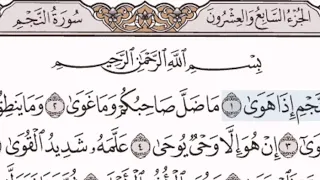 الجُزْءُ السَّابِعُ وَالعِشْرُونَ سُورَةُ النَّجْمِ
بِسْمِ اللَّهِ الرَّحْمَٰنِ الرَّحِيمِ
إِذَا هَوَىٰ ١ مَا ضَلَّ صَاحِبُكُمْ وَمَا غَوَىٰ ٢ وَمَا يَنطِقُ
٣ إِنْ هُوَ إِلَّا وَحْيٌ يُوحَىٰ ٤ عَلَّمَهُ شَدِيدُ الْقُوَىٰ